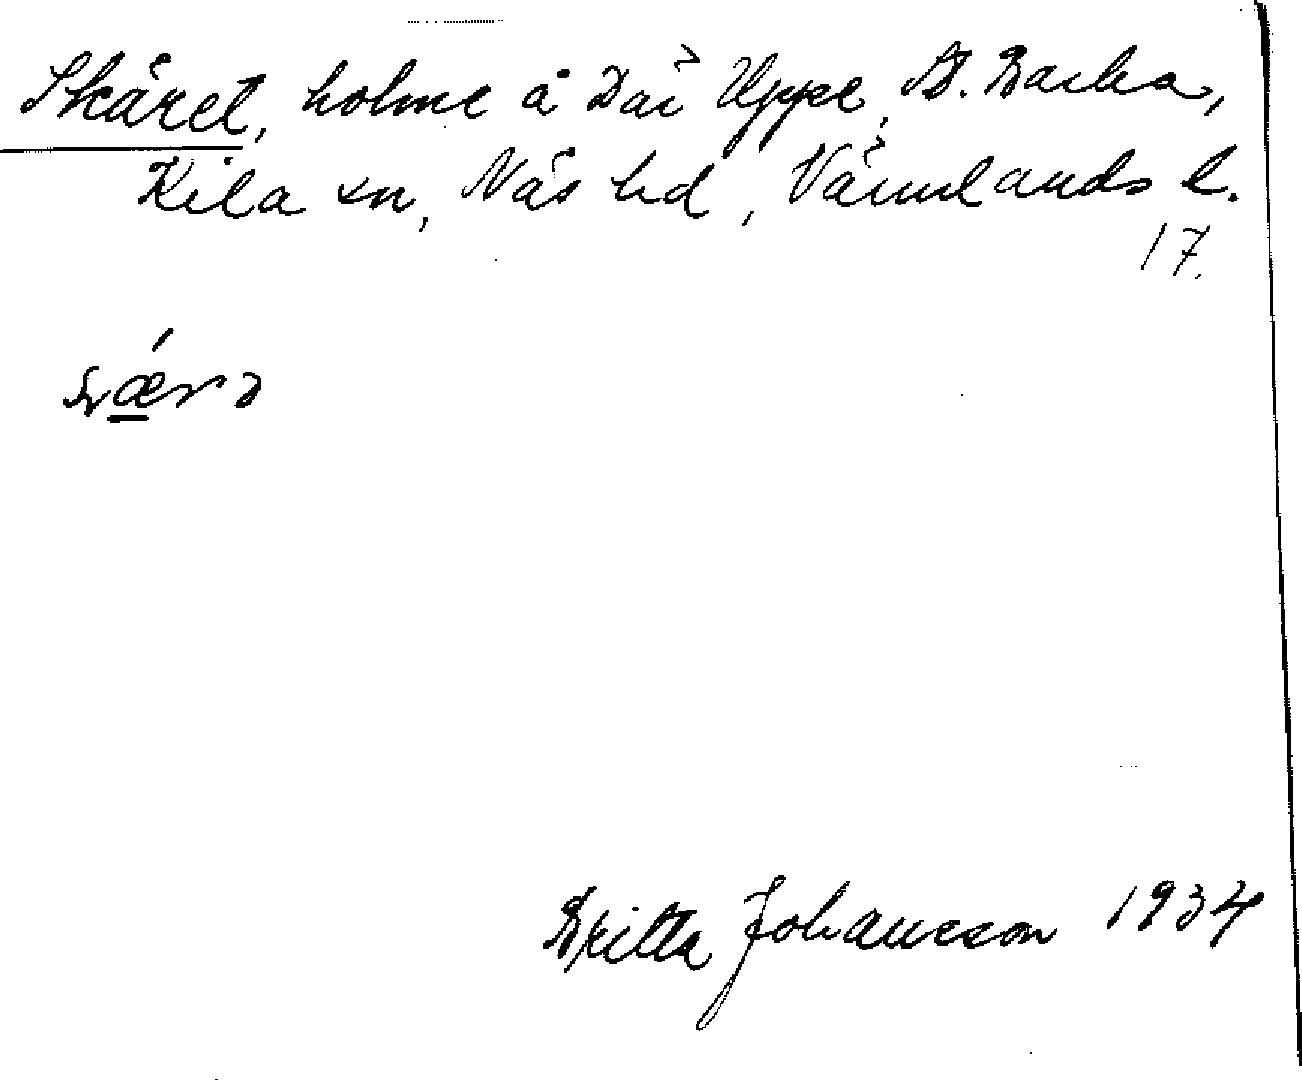 Skäret, holme å Där Uppe, St. Backa,
Kila sn, Näs hd, Värmlands l.
17.
Britta Johansson 1934